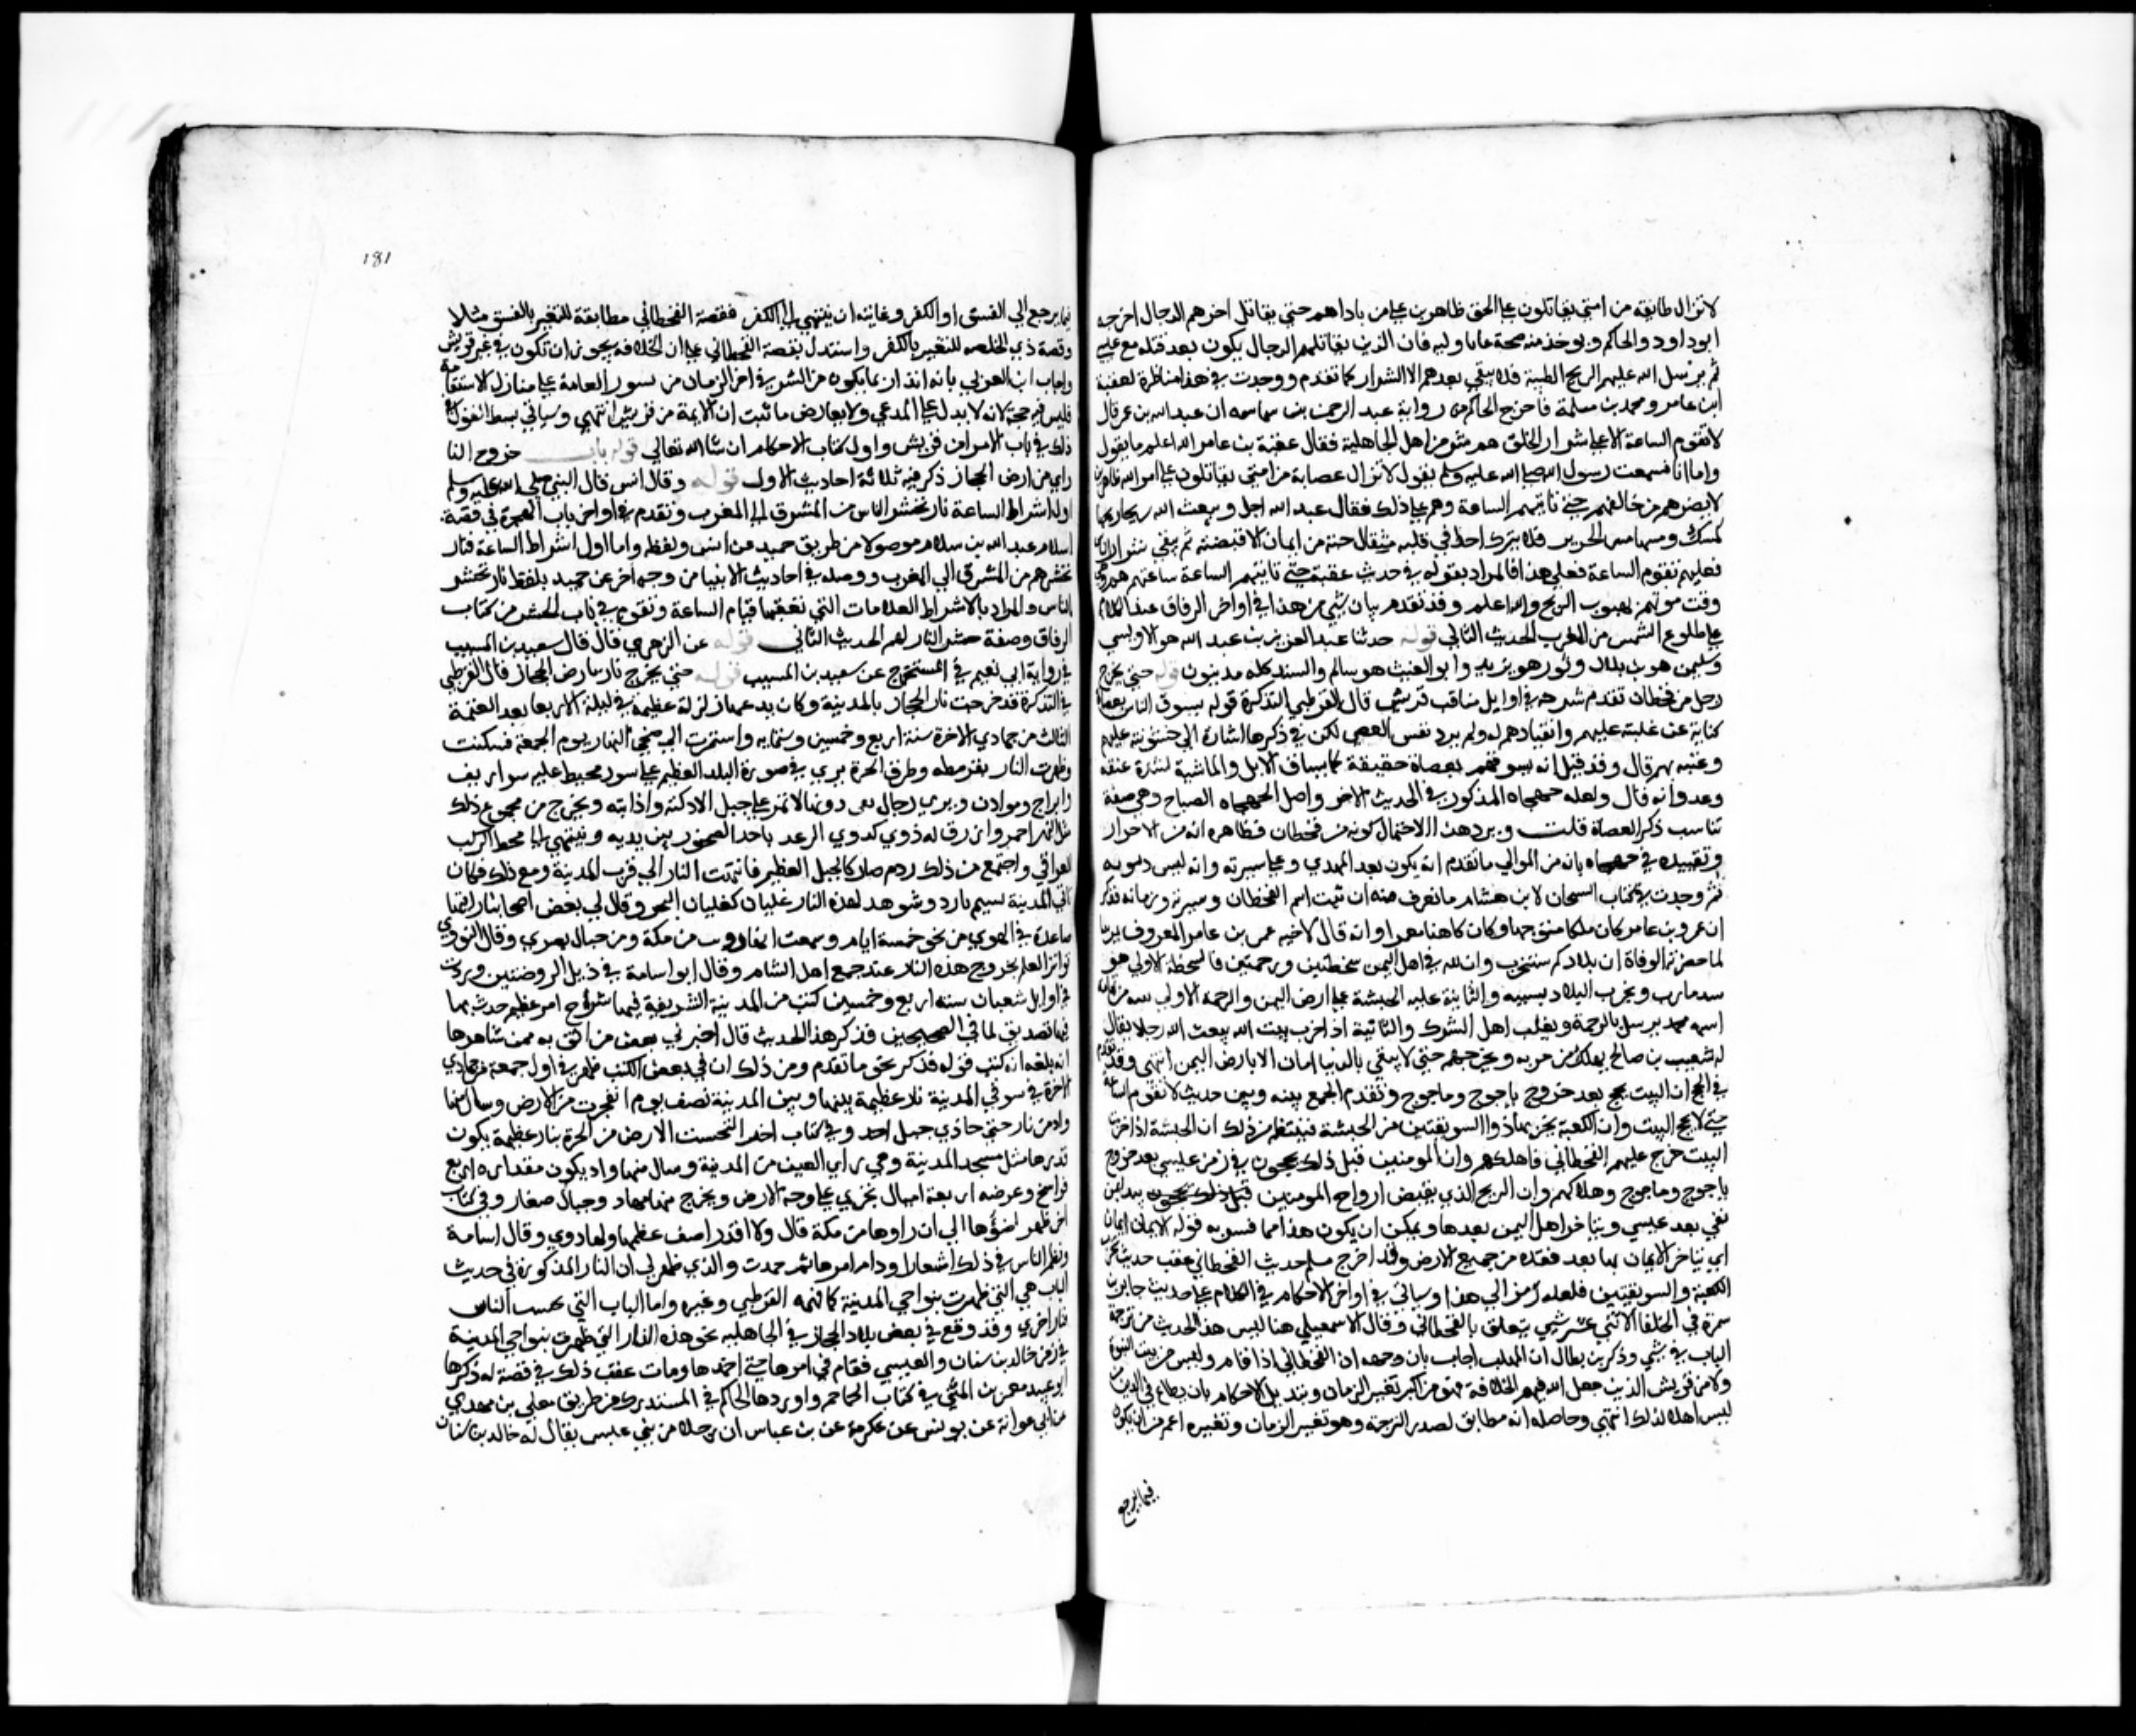 لاتزال طايفة من امتي يقاتلون علي الحق ظاهرين علي من ناواهم حتي يقاتل اخرهم الدجال اخرجه
ابوداود والحاكم ويوخذ منه صحة ما تاوليه فان الذين يقاتلهم الدجال يكون بعد قتله مع عيسي
ثم يرسل الله عليهم الريح الطيبة فلا يبقي بعدهم الا الشرار كما تقدم ووجدت في هذا مناظرة لعقبة
ابن عامر ومحمد بن مسلمة فاخرج الحاكم من رواية عبد الرحمن بن سماسه ان عبد الله بن عمر قال
لاتقوم الساعة الا علي شرار الخلق هم شر من اهل الجاهلية فقال عقبة بن عامر الله اعلم ما يقول
واما انا فسمعت رسول الله صلي الله عليه وسلم يقول لاتزال عصابة من امتي يقاتلون علي امر الله ظاهرين
لايضرهم من خالفهم حتي تاتيهم الساعة وهم علي ذلك فقال عبد الله اجل ويبعث الله ريحا ريحها
كمسك ومسها مس الحرير فلا يترك احدا في قلبه مثقال حبة من ايمان الا قبضته ثم يبقي شرار الناس
فعليهم تقوم الساعة فعلي هذا فالمراد بقوله في حديث عقبة حتي تاتيهم الساعة ساعتهم هم وهي
وقت موتهم بهبوب الريح والله اعلم وقد تقدم بيان شي من هذا في اواخر الرقاق عند الكلام
علي طلوع الشمس من المغرب الحديث الثاني قوله حدثنا عبد العزيز بن عبد الله هو الاويسي
وسليمن هو بن بلال وثور هو بن زيد وابو الغيث هو سالم والسند كله مدنيون قوله حتي يخرج
رجل من قحطان تقدم شرحه في اوايل مناقب قريش قال القرطبي التذكرة قوله يسوق الناس بعصاه
كناية عن غلبته عليهم وانقيادهم له ولم يرد نفس العصي لكن في ذكرها اشارة الي خشونته عليهم
وعنفه بهم قال وقد قيل انه يسوقهم بعصاة حقيقة كما يساق الابل والماشية لشدة عنفه
وعدوانه قال ولعله جهجاه المذكور في الحديث الاخر واصل الجهجاه الصباح وهي صفة
تناسب ذكر العصاة قلت ويرد هذا الاحتمال كونه من قحطان فظاهره انه من الاحرار
وتقييده في جهجاه بانه من الموالي ما تقدم انه يكون بعد المهدي وعلي سيرته وانه ليس دونه
ثم وجدت في كتاب التيجان لابن هشام ما تعرف منه ان ثبت اسم القحطان وسيرته وزمانه فذكر
ان عمرو بن عامر كان ملكا متوجا وكان كاهنا معمرا وانه قال لاخيه عمر بن عامر المعروف بمزيقيا
لما حضرته الوفاة ان بلادكم ستخرب وان لله في اهل اليمن سخطتين ورحمتين فالسخطة الاولي هو
سد مارب ويخرب البلاد بسببه والثانية عليه الحبشة علي ارض اليمن والرحمة الاولي بعثة نبي من تهامة
اسمه محمد يرسل بالرحمة ويغلب اهل الشرك والثانية اذا خرب بيت الله يبعث الله رجلا يقال
له شعيب بن صالح يهلك من خربه ويخرجهم حتي لا يبقي بالدنيا امان الا بارض اليمن انتهي وقد تقدم
في الحج ان البيت يحج بعد خروج ياجوج وماجوج وتقدم الجمع بينه وبين حديث لاتقوم الساعة
حتي لا يحج البيت وان الكعبة يخربها ذوا السويقتين من الحبشة فينتظم من ذلك ان الحبشة اذا خربت
البيت خرج عليهم القحطاني فاهلكهم وان المومنين قبل ذلك يحجون في زمن عيسي بعد خروج
ياجوج وماجوج وهلاكهم وان الريح الذي يقبض ارواح المومنين قبل ذلك يحجون يبدا بمن
بقي بعد عيسي ويتاخر اهل اليمن بعدها ويمكن ان يكون هذا مما فسر به قوله الايمان يمان
اي يتاخر الايمان بها بعد فقده من جميع الارض وقد اخرج مسلم حديث القحطاني عقب حديث تخريب
الكعبة والسويقتين فلعله رمز الي هذا وسياتي في اواخر الاحكام في الكلام علي حديث جابر بن
سمرة في الخلفا الاثني عشر شي يتعلق بالقحطاني وقال الاسمعيلي هنا ليس هذا الحديث من ترجمة
الباب في شي وذكر بن بطال ان المهلب اجاب بان وجهه ان القحطاني اذا قام وليس من بيت النبوة
ولا من قريش الذين جعل الله فيهم الخلافة فهو من اكبر تغير الزمان وتبديل الاحكام بان يطاع في الدين من
ليس اهلا لذلك انتهي وحاصله انه مطابق لصدر الترجمة وهو تغيير الزمان وتغييره اعم من ان يكون
فيما يرجع
181
فيما يرجع الي الفسق او الكفر وغايته ان ينتهي الي الكفر فقصة القحطاني مطابقة للتغير بالفسق مثلا
وقصة ذي الخلصه للتغير بالكفر واستدل بقصة القحطاني علي ان الخلافة يجوز ان تكون في غير قريش
واجاب ابن العربي بانه انذار بما يكون من الشر في اخر الزمان من تسور العامة علي منازل الاستقامة
فليس فيه حجة لانه لا يدل علي المدعي ولا يعارض ما ثبت ان الايمة من قريش انتهي وسياتي بسط القول في
ذلك في باب الامرا من قريش واول كتاب الاحكام ان شا الله تعالي قوله باب خروج النا
راي من ارض الحجاز ذكر فيه ثلاثة احاديث الاول قوله وقال انس قال النبي صلي الله عليه وسلم
اول اشراط الساعة نار تحشر الناس من المشرق الي المغرب وتقدم في اواخر باب الهجرة في قصة
اسلام عبد الله بن سلام موصولا من طريق حميد عن انس ولفظه واما اول اشراط الساعة فنار
تحشرهم من المشرق الي المغرب ووصله في احاديث الانبيا من وجه اخر عن حميد بلفظ نار تحشر
الناس والمراد بالاشراط العلامات التي تعقبها قيام الساعة وتقدم في باب الحشر من كتاب
الرقاق وصفة حشر النار لهم الحديث الثاني قوله عن الزهري قال قال سعيد بن المسيب
في رواية ابي نعيم في المستخرج عن سعيد بن المسيب قوله حتي يخرج نار من ارض الحجاز قال القرطبي
في التذكرة قد خرجت نار الحجاز بالمدينة وكان بدءها زلزلة عظيمة في ليلة الاربعا بعد العتمة
الثالث من جمادي الاخرة سنة اربع وخمسين وستمايه واستمرت الي ضحي النهار يوم الجمعة فسكنت
وظهرت النار بقريظه وطرف الحرة يري في صورة البلد العظيم علي سور محيط عليه سواريف
وابراج وموادن ويري رجال دونها لا تمر علي جبل الا دكته واذابته ويخرج من مجموع ذلك
مثل النهر احمر وازرق له دوي كدوي الرعد ياخذ الصخور بين يديه وينتهي الي محط الركب
العراقي واجتمع من ذلك ردم صار كالجبل العظيم فانتهت النار الي قرب المدينة ومع ذلك فكان
ياتي المدينة نسيم بارد وشوهد لهذه النار غليان كغليان البحر وقال لي بعض اصحابنا رايتها
صاعدة في الهوي من نحو خمسة ايام وسمعت انها رويت من مكة ومن جبال بصري وقال النووي
تواتر العلم بخروج هذه النار عند جمع اهل الشام وقال ابو اسامة في ذيل الروضتين وردت
في اوايل شعبان سنه اربع وخمسين كتب من المدينة الشريفة فيها شرح امر عظيم حدث بها
فيها تصديق لما في الصحيحين فذكر هذا الحديث قال اخبرني بعض من اثق به ممن شاهدها
انه بلغه انه كتب قوله فذكر نحو ما تقدم ومن ذلك ان في بعض الكتب ظهر في اول جمعة من جمادي
الاخرة في سوقي المدينة نار عظيمة بينها وبين المدينة نصف يوم انفجرت من الارض وسال منها
واد من نار حتي حاذي جبل احد وفي كتاب اخر انبجست الارض من الحرة بنار عظيمة يكون
قدرها مثل مسجد المدينة وهي براي العين من المدينة وسال منها واد يكون مقداره اربع
فراسخ وعرضه اربعة اميال يجري علي وجه الارض ويخرج منها مهاد وجبال صغار وفي كتاب
اخر ظهر ضوؤها الي ان راوها من مكة قال ولا اقدر اصف عظمها ولها دوي وقال اسامة
ونظم الناس في ذلك اشعارا ودام امرها ثم خمدت والذي ظهر لي ان النار المذكورة في حديث
الباب هي التي ظهرت بنواحي المدينة كما فهمه القرطبي وغيره واما الباب التي تحسب الناس
فنار اخري وقد وقع في بعض بلاد الحجاز في الجاهلية نحو هذه النار التي ظهرت بنواحي المدينة
في زمن خالد بن سنان والعبسي فقام في امرها حتي اخمدها ومات عقب ذلك في قصة له ذكرها
ابو عبيد معمر بن المثني في كتاب الجماجم واوردها الحاكم في المستدرك من طريق معلي بن مهدي
عن ابي عوانة عن يونس عن عكرمة عن بن عباس ان رجلا من بني عبس يقال له خالد بن سنان